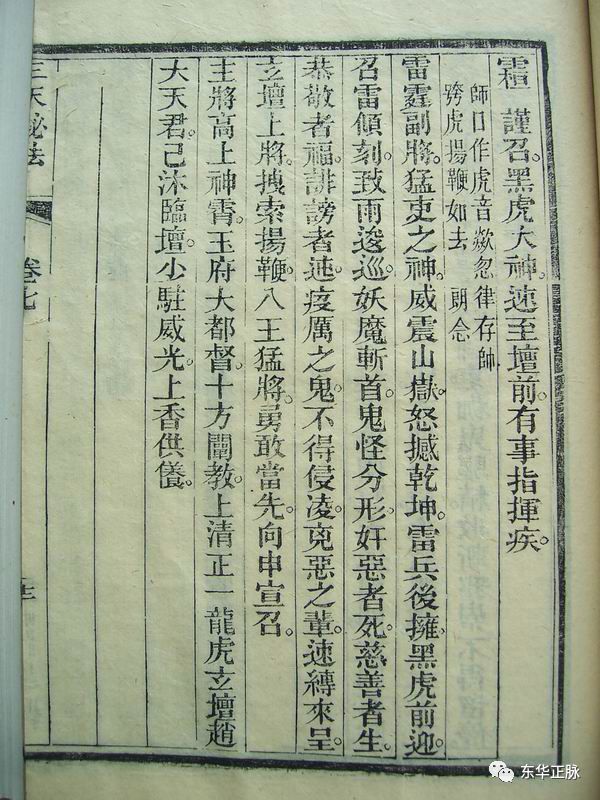 謹召。黑虎大神。速至壇前。有事指揮疾
師口作虎音歘忽律存帥
跨虎揚鞭如去 朗念
雷霆副將。猛吏之神。威震山嶽。怒撼乾坤。雷兵後擁。黑虎前迎。
召雷傾刻。致雨逡巡。妖魔斬首。鬼怪分形。奸惡者死。慈善者生。
恭敬者福。誹謗者迍。疫厲之鬼。不得侵凌。兇惡之輩。速縛來呈。
玄壇上將。拽索揚鞭。八王猛將。勇敢當先。向申宣召。
主將高上神霄。玉府大都督。十方闡教。上清正一龍虎玄壇趙
大天君。已沐臨壇。少駐威光。上香供養。
三天秘法
卷七
东华正脉